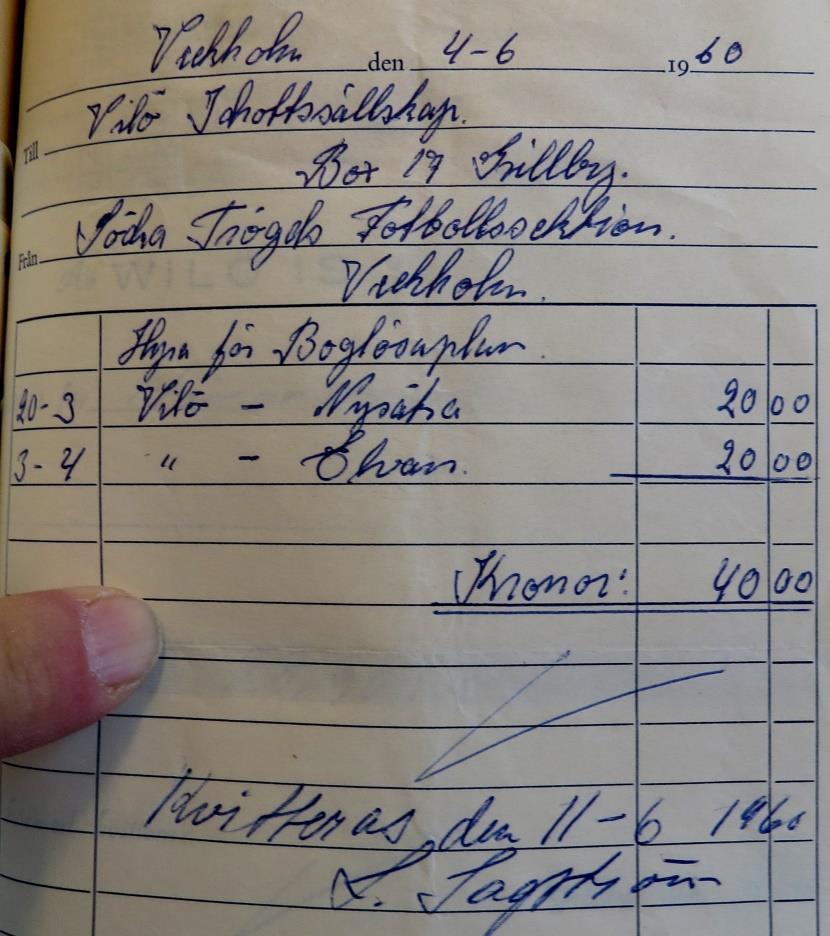 Veckholm den 4-6 1960
Till Vilö Idrottssällskap.
Box 17 Grillby.
Från Södra Trögds Fotbollssektion.
Veckholm.
Hyra för Boglösaplan.
20-3 Vilö - Nysätra 20 00
3-4 " - Elvan. 20 00
Kronor: 40 00
Kvitteras den 11-6 1960
L.